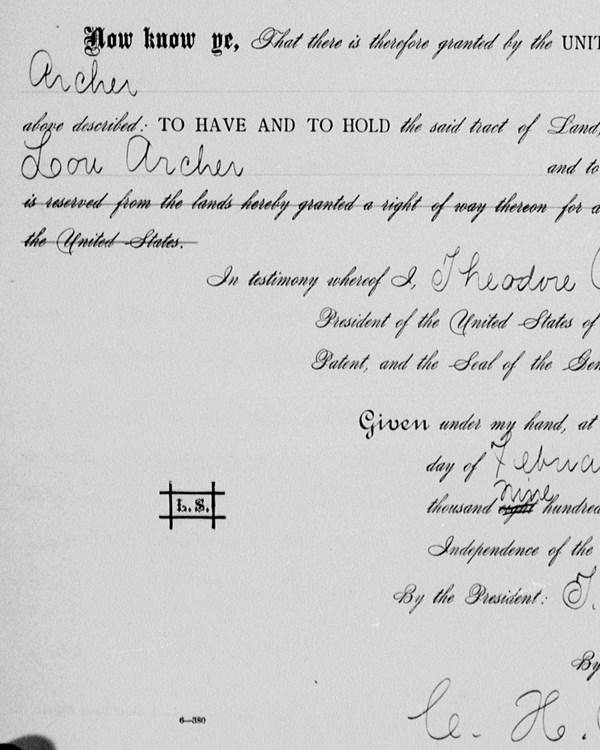 Now know ye, That there is therefore granted by the UNIT
Archer
above described: TO HAVE AND TO HOLD the said tract of Land,
Lou Archer and to
is reserved from the lands hereby granted a right of way thereon for a
the United States.
In testimony whereof I, Theodore
President of the United States of
Patent, and the Seal of the Gen
Given under my hand, at
day of Februa
nine
thousand eight hundred
Independence of the
L. S.
By the President: T.
By
C. H.
6—380